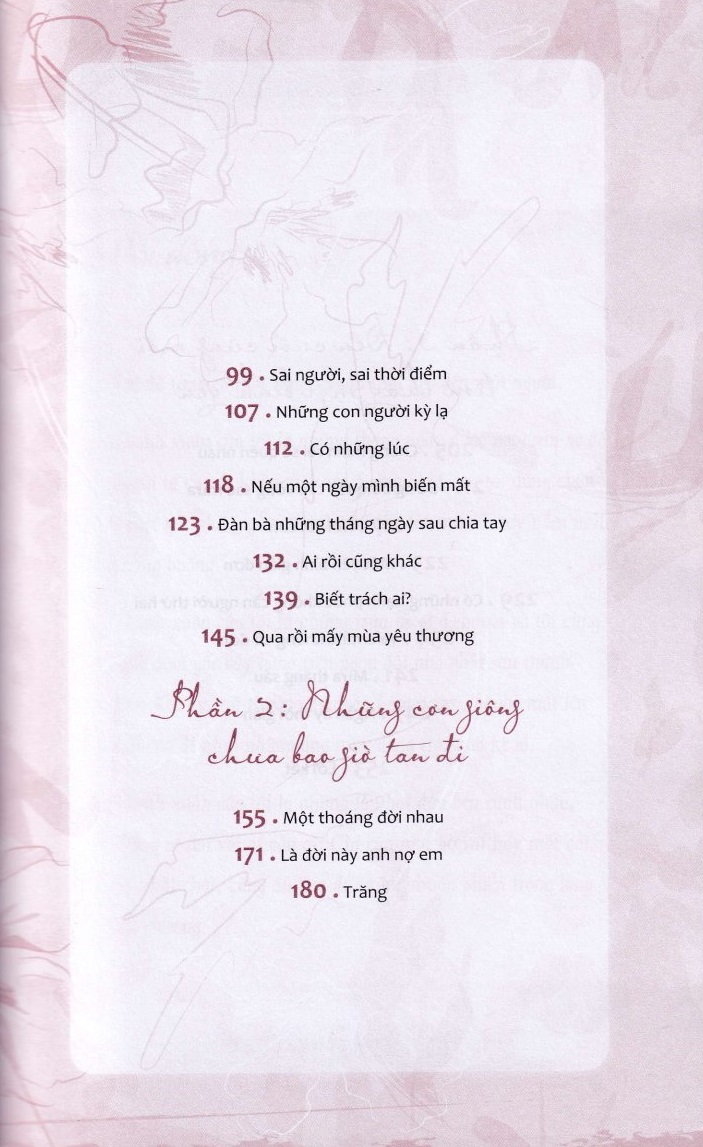 99 . Sai người, sai thời điểm
107 . Những con người kỳ lạ
112 . Có những lúc
118 . Nếu một ngày mình biến mất
123 . Đàn bà những tháng ngày sau chia tay
132 . Ai rồi cũng khác
139 . Biết trách ai?
145 . Qua rồi mấy mùa yêu thương
Phần 2: Những cơn giông
chưa bao giờ tan đi
155 . Một thoáng đời nhau
171 . Là đời này anh nợ em
180 . Trăng